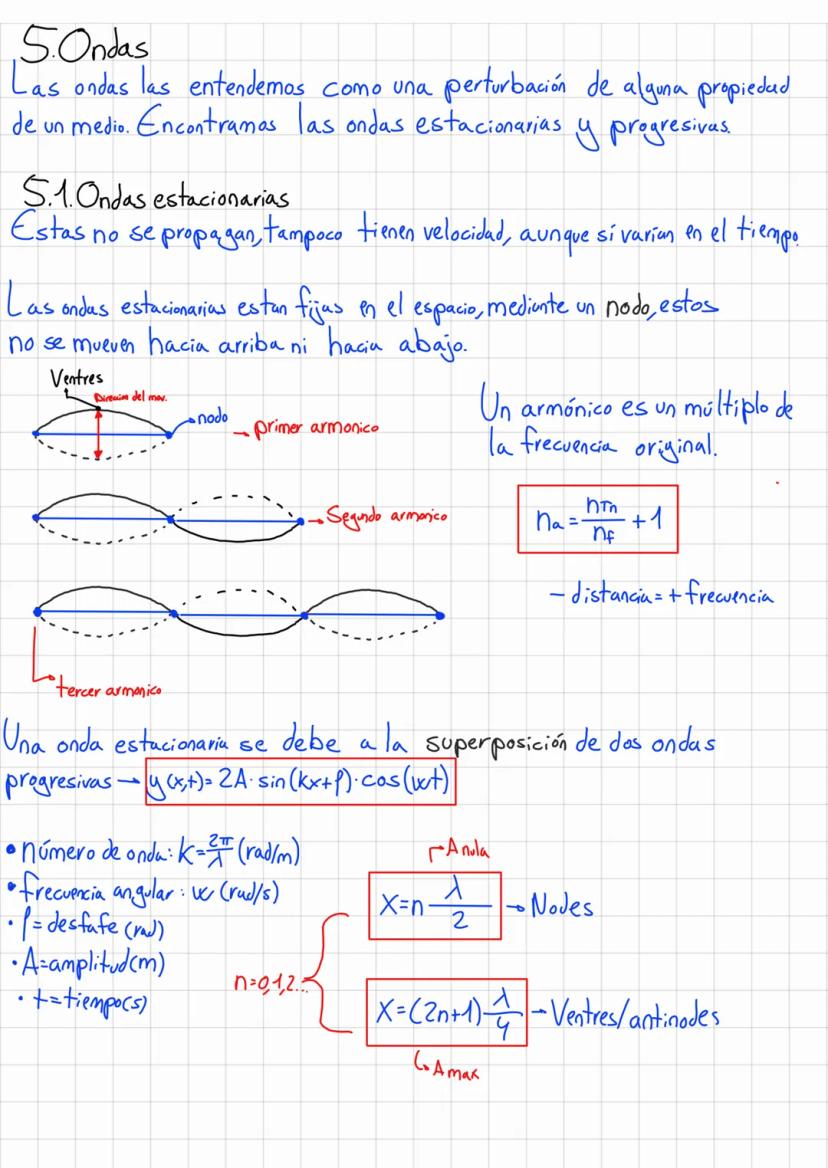 5.Ondas
Las ondas las entendemos como una perturbación de alguna propiedad
de un medio. Encontramos las ondas estacionarias y progresivas.
5.1.Ondas estacionarias
Estas no se propagan, tampoco tienen velocidad, aunque sí varían en el tiempo.
Las ondas estacionarias estan fijas en el espacio, mediante un nodo, estos
no se mueven hacia arriba ni hacia abajo.
Ventres
Direccion del mov.
nodo
→ primer armonico
Un armónico es un múltiplo de
la frecuencia original.
→ Segundo armonico
na = nTn/nf + 1
- distancia = + frecuencia
tercer armonico
Una onda estacionaria se debe a la superposición de dos ondas
progresivas → y(x,t)= 2A·sin(kx+φ)·cos(wt)
• número de onda: K=2π/λ (rad/m)
• frecuencia angular: w (rad/s)
• φ= desfafe (rad)
• A=amplitud(m)
• t=tiempo(s)
n=0,1,2...
A nula
X=n λ/2 → Nodes
X=(2n+1) λ/4 → Ventres/antinodes
A max